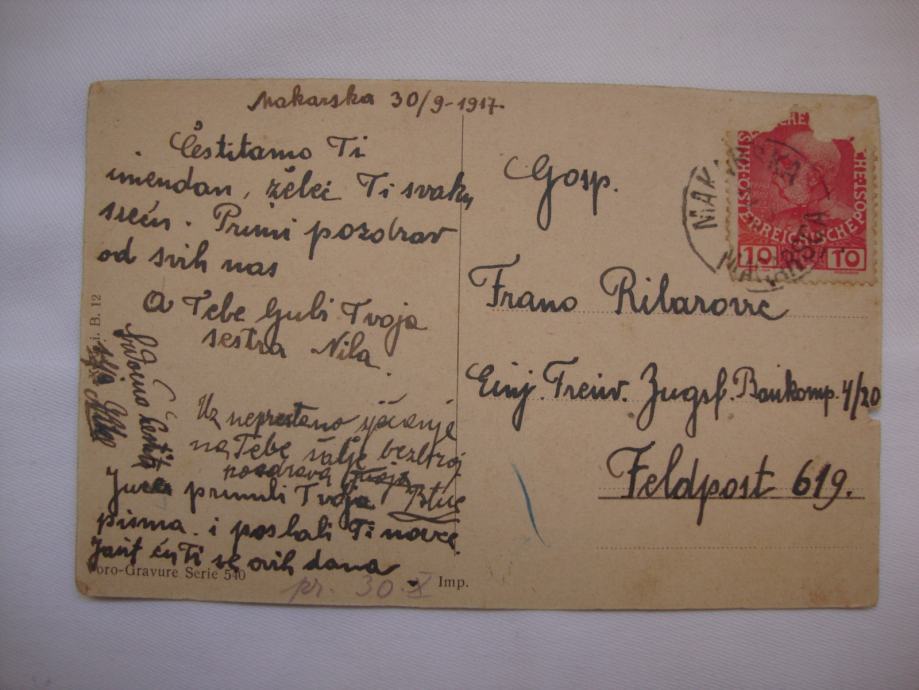 Makarska 30/9-1917.
Čestitamo Ti
imendan, želeć Ti svaku
sreću. Primi pozdrav
od svih nas
A Tebe ljubi Tvoja
sestra Nila.
Uz neprestano sjećanje
na Tebe šalje bezbroj
pozdrava
Jučer primili Tvoja
pisma i poslali Ti novce.
Javit ću Ti se ovih dana
pr. 30.X
oro-Gravure Serie 540
Imp.
i. B. 12
Gosp.
Frano Ribarović
Einj. Freiw. Zugsf. Baukomp. 4/20
Feldpost 619.
10 10
MAKARSKA